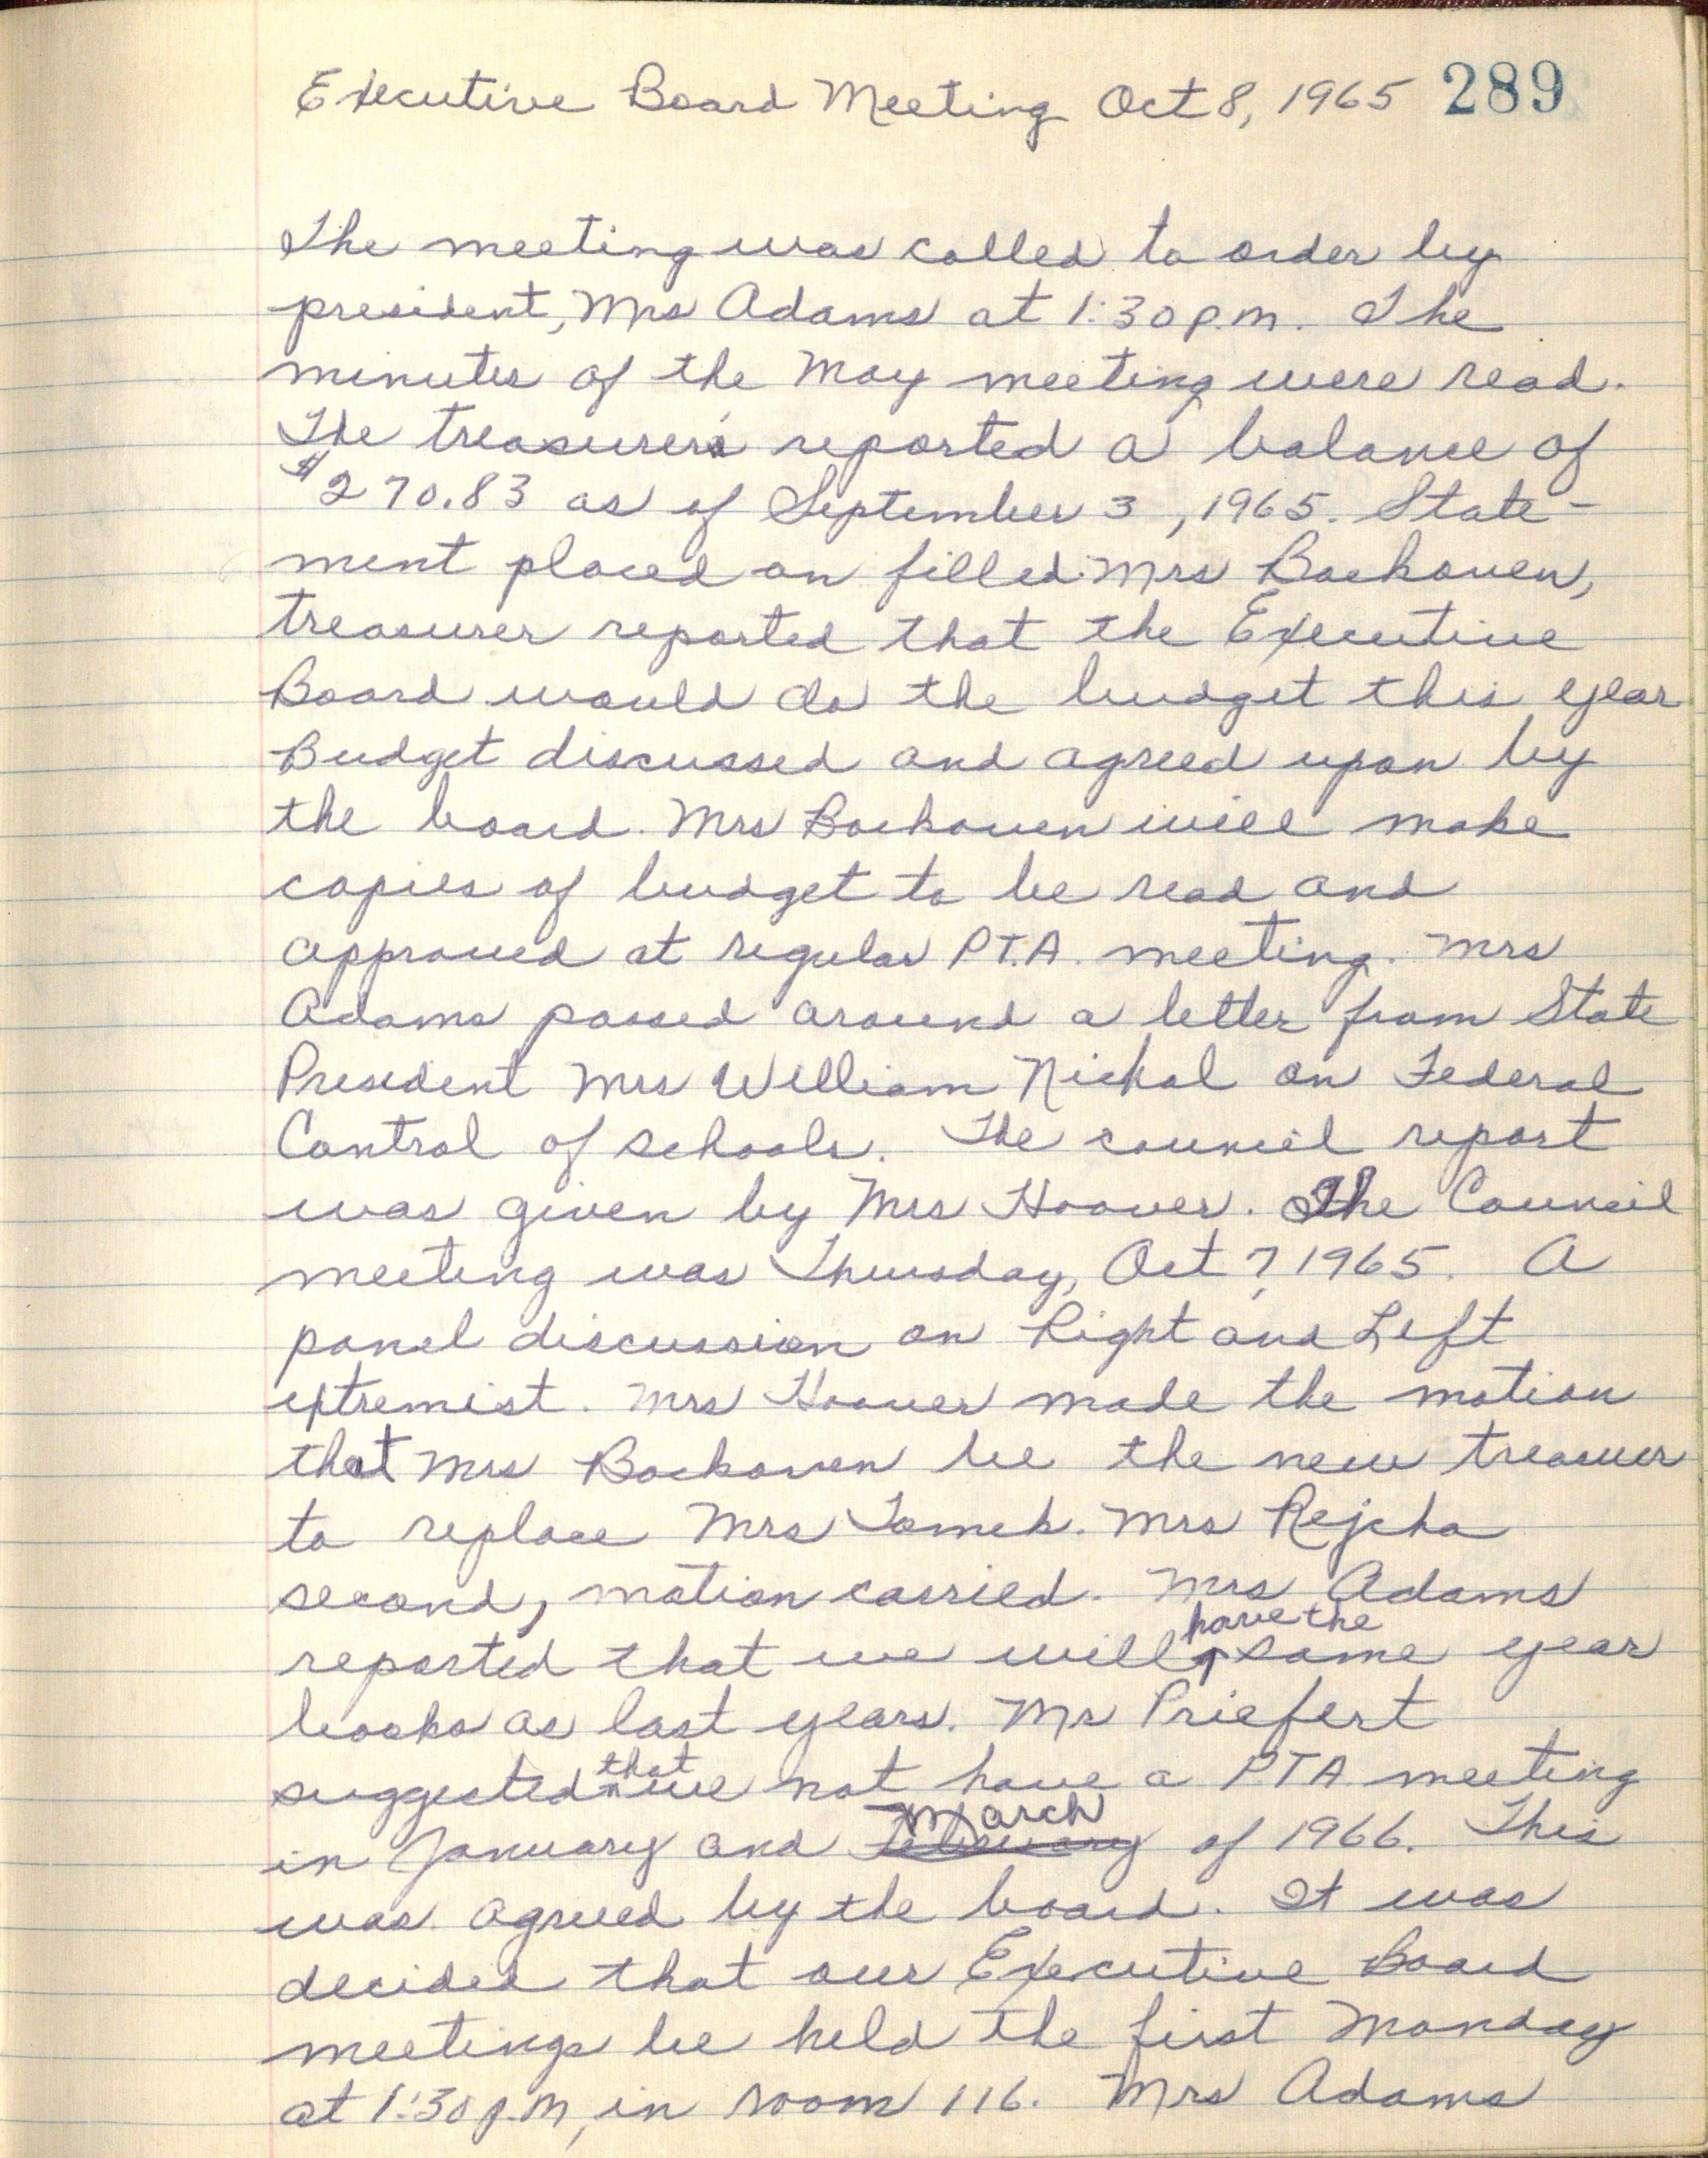 Executive Board Meeting Oct 8, 1965 289
The meeting was called to order by
president, Mrs Adams at 1:30 p.m. The
minutes of the May meeting were read.
The treasurers reported a balance of
$270.83 as of September 3, 1965. State-
ment placed on filled. Mrs Bockoven,
treasurer reported that the Executive
Board would do the budget this year
Budget discussed and agreed upon by
the board. Mrs Bockoven will make
copies of budget to be read and
approved at regular P.T.A. meeting. Mrs
Adams passed around a letter from State
President Mrs William Nickal on Federal
Control of schools. The council report
was given by Mrs Hoover. The Council
meeting was Thursday, Oct 7, 1965. A
panel discussion on Right and Left
extremist. Mrs Hoover made the motion
that Mrs Bockoven be the new treasurer
to replace Mrs Tomek. Mrs Rejcha
second, motion carried. Mrs Adams
reported that we will have the same year
books as last years. Mr Priefert
suggested that we not have a PTA meeting
in January and February March of 1966. This
was agreed by the board. It was
decided that our Executive Board
meetings be held the first Monday
at 1:30 p.m, in room 116. Mrs Adams